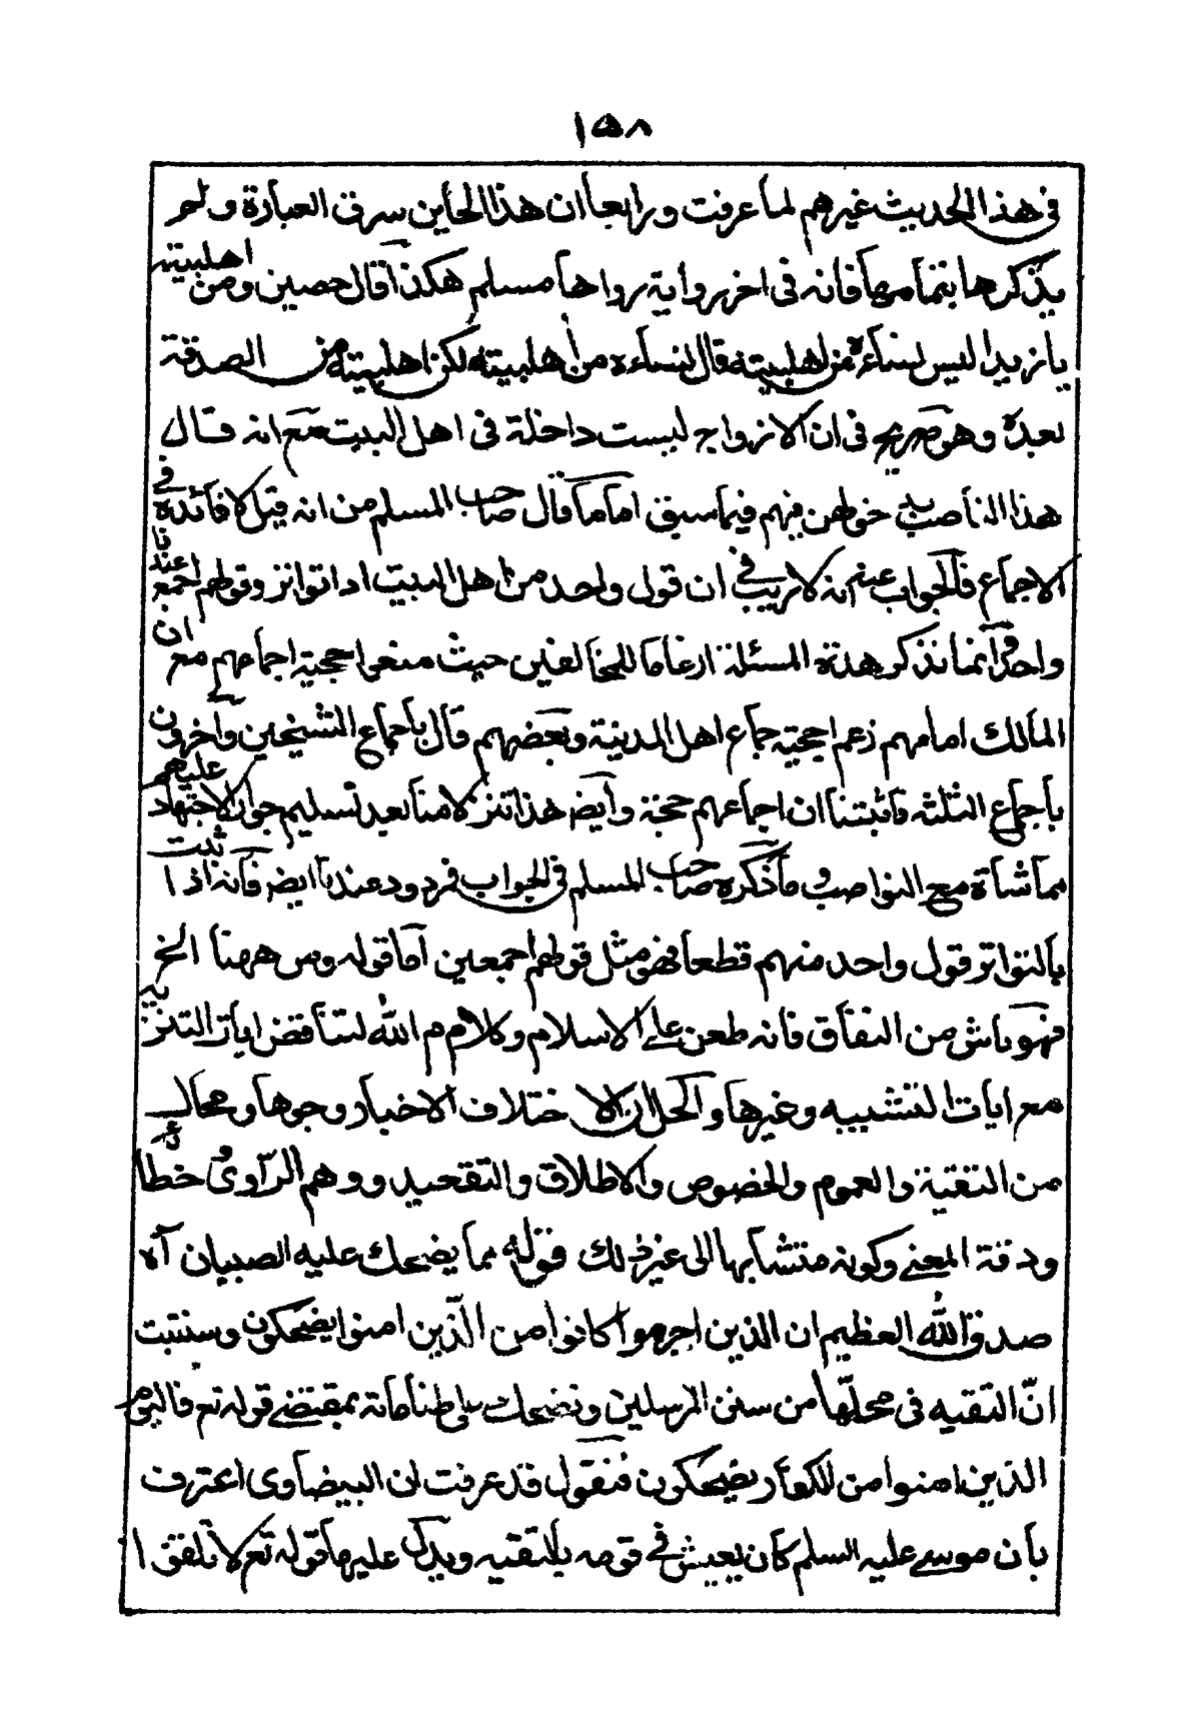 ١٥٨
فى هذا الحديث غيرهم لما عرفت ورابعا ان هذا الخاين سرق العبارة ولم
يذكرها بتمامها فانه فى اخر رواية رواها مسلم هكذا قال حصين ومن اهلبيته
يا زيد اليس نساءه من اهلبيته قال نساءه من اهلبيته لكن اهلبيته من الصدقة
بعده وهو صريح فى ان الازواج ليست داخلة فى اهل البيت مع انه قال
هذا الناصب خولهن فيهم فيما سبق اما ما قال صاحب المسلم من انه قيل لا فائدة فى
الاجماع فالجواب عنه انه لا ريب فى ان قول واحد من اهل البيت اذا تواتر وقولهم اجمع عندنا
واحد وانما نذكر هذه المسئلة ارغاما للمخالفين حيث منعوا حجية اجماعهم مع ان
المالك امامهم زعم حجية اجماع اهل المدينة وبعضهم قال باجماع الشيخين وآخرون
باجماع الثلثه فاثبتنا ان اجماعهم حجة وايض هذا تنزلا منا بعد تسليم جواز الاجتهاد عليهم
مماشاة مع النواصب وما ذكره صاحب المسلم فى الجواب فردود عندنا ايض فانه اذا ثبت
بالتواتر قول واحد منهم قطعا فهو مثل قولهم اجمعين اما قوله ومن ههنا الخ
فهو ناش من النفاق فانه طعن على الاسلام وكلام الله لتناقض ايات التنزيه
مع ايات التشبيه وغيرها والحل ان لا ختلاف الاخبار وجوها ومحال
من التقية والعموم والخصوص والاطلاق والتقييد ووهم الراوى خطأ
ودقة المعنى وكونه متشابها الى غير ذلك قوله مما يضحك عليه الصبيان آه
صدق الله العظيم ان الذين اجرموا كانوا من الذين امنوا يضحكون وسنثبت
انّ التقيه فى محلّها من سنن المرسلين ونضحك على طناماته بمقتضى قوله تع فاليوم
الذين امنوا من الكفار يضحكون فنقول قد عرفت ان البيضاوى اعترف
بان موسى عليه السلم كان يعيش فى قومه بالتقيه ويدل عليها قوله تع لا تلقوا